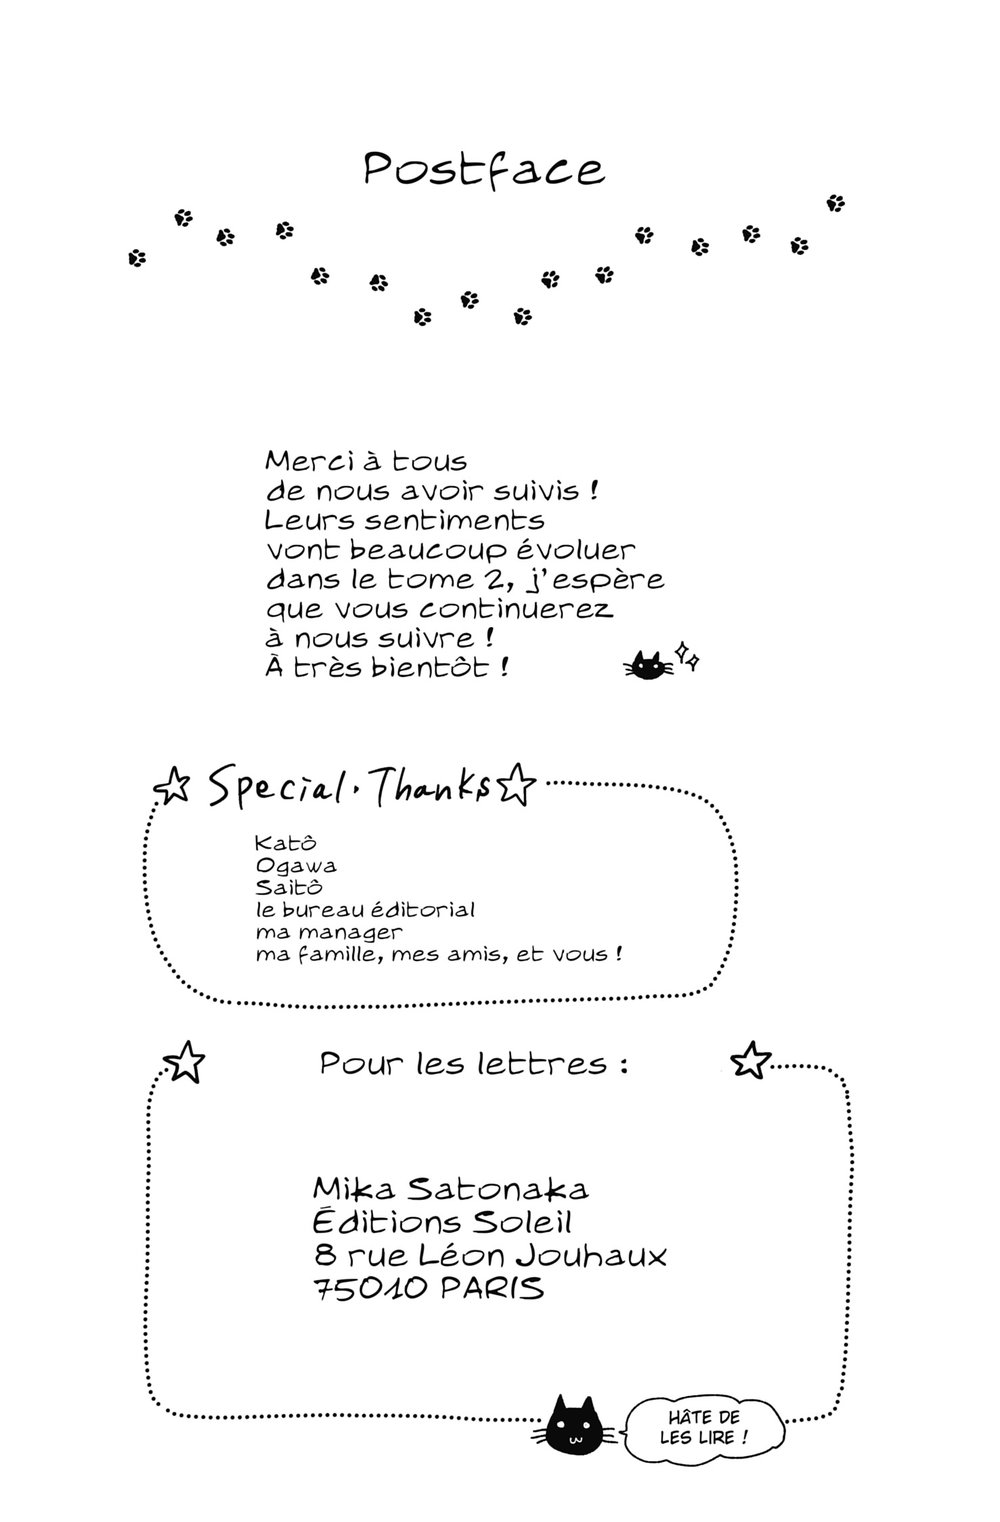 Postface
Merci à tous
de nous avoir suivis !
Leurs sentiments
vont beaucoup évoluer
dans le tome 2, j'espère
que vous continuerez
à nous suivre !
À très bientôt !
Special・Thanks
Katô
Ogawa
Saitô
le bureau éditorial
ma manager
ma famille, mes amis, et vous !
Pour les lettres :
Mika Satonaka
Éditions Soleil
8 rue Léon Jouhaux
75010 PARIS
HÂTE DE
LES LIRE !